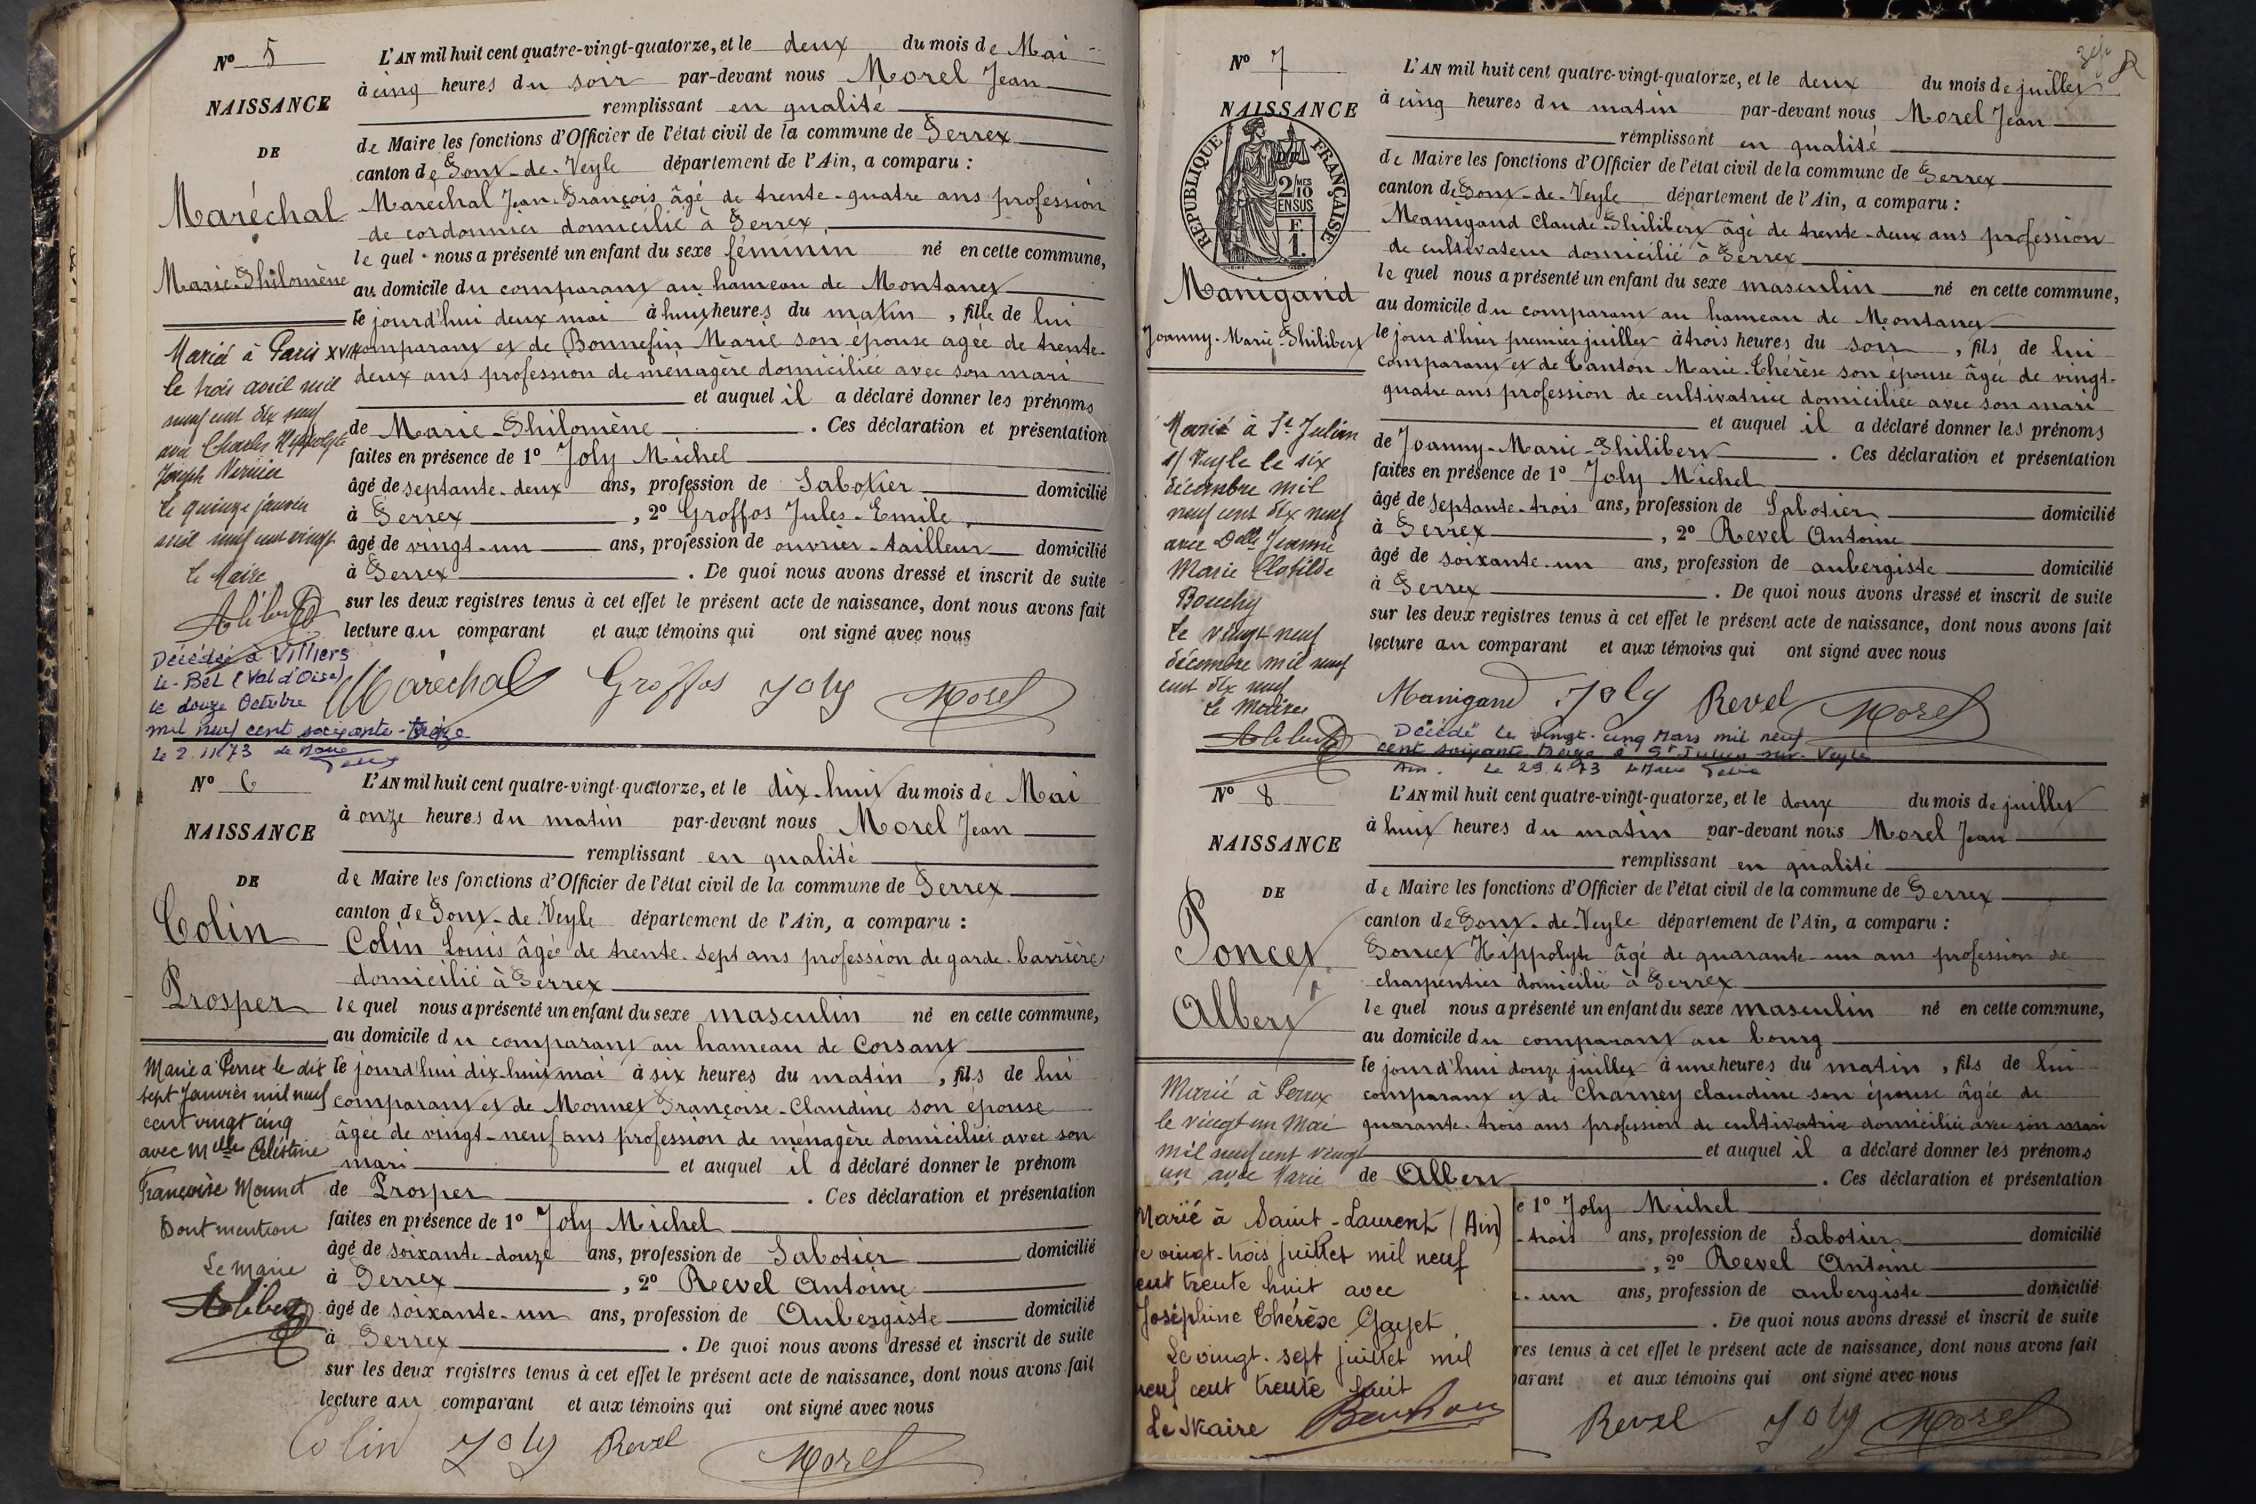 N° 5
NAISSANCE
DE
Maréchal
Marie-Philomène
Marié à Paris XVII
le trois avril mil
neuf cent dix neuf
avec Charles Hippolyte
Joseph Vernier
le quinze janvier
mil neuf cent vingt
Le Maire
Décédée à Villiers
Le-Bel (Val d'Oise)
le douze Octobre
mil neuf cent soixante-treize
Le 2.11.73 Le Maire
L'AN mil huit cent quatre-vingt-quatorze, et le deux du mois de Mai
à cinq heures du soir par-devant nous Morel Jean
remplissant en qualité
de Maire les fonctions d'Officier de l'état civil de la commune de Perrex
canton de Pont-de-Veyle département de l'Ain, a comparu :
Maréchal Jean-François âgé de trente-quatre ans profession
de cordonnier domicilié à Perrex
lequel nous a présenté un enfant du sexe féminin né en cette commune,
au domicile du comparant au hameau de Montanet
le jourd'hui deux mai à huit heures du matin, fille de lui
comparant et de Bonnefin Marie son épouse agée de trente-
deux ans profession de ménagère domiciliée avec son mari
et auquel il a déclaré donner les prénoms
de Marie-Philomène. Ces déclaration et présentation
faites en présence de 1° Joly Michel
âgé de septante-deux ans, profession de Sabotier domicilié
à Perrex, 2° Groffos Jules-Emile
âgé de vingt-un ans, profession de ouvrier-tailleur domicilié
à Perrex. De quoi nous avons dressé et inscrit de suite
sur les deux registres tenus à cet effet le présent acte de naissance, dont nous avons fait
lecture au comparant et aux témoins qui ont signé avec nous
Maréchal Groffos Joly Morel
N° 6
NAISSANCE
DE
Colin
Prosper
Marié à Perrex le dix
sept Janvier mil neuf
cent vingt cinq
avec Melle Célestine
Françoise Monnet
Dont mention
Le Maire
L'AN mil huit cent quatre-vingt-quatorze, et le dix-huit du mois de Mai
à onze heures du matin par-devant nous Morel Jean
remplissant en qualité
de Maire les fonctions d'Officier de l'état civil de la commune de Perrex
canton de Pont-de-Veyle département de l'Ain, a comparu :
Colin Louis âgé de trente-sept ans profession de garde-barrière
domicilié à Perrex
lequel nous a présenté un enfant du sexe masculin né en cette commune,
au domicile du comparant au hameau de Corsant
le jourd'hui dix-huit mai à six heures du matin, fils de lui
comparant et de Monnet Françoise-Claudine son épouse
âgée de vingt-neuf ans profession de ménagère domiciliée avec son
mari et auquel il a déclaré donner le prénom
de Prosper. Ces déclaration et présentation
faites en présence de 1° Joly Michel
âgé de soixante-douze ans, profession de Sabotier domicilié
à Perrex, 2° Revel Antoine
âgé de soixante-un ans, profession de Aubergiste domicilié
à Perrex. De quoi nous avons dressé et inscrit de suite
sur les deux registres tenus à cet effet le présent acte de naissance, dont nous avons fait
lecture au comparant et aux témoins qui ont signé avec nous
Colin Joly Revel Morel
N° 7
NAISSANCE
RÉPUBLIQUE FRANÇAISE
2/10 MES
EN SUS
F.
1.
Manigand
Joanny-Marie-Philibert
Marié à St Julien
s/ Veyle le six
décembre mil
neuf cent dix neuf
avec Delle Jeanne
Marie Clotilde
Bouchy
Le vingt neuf
décembre mil neuf
cent dix neuf
Le Maire
L'AN mil huit cent quatre-vingt-quatorze, et le deux du mois de juillet
à cinq heures du matin par-devant nous Morel Jean
remplissant en qualité
de Maire les fonctions d'Officier de l'état civil de la commune de Perrex
canton de Pont-de-Veyle département de l'Ain, a comparu :
Manigand Claude-Philibert âgé de trente-deux ans profession
de cultivateur domicilié à Perrex
lequel nous a présenté un enfant du sexe masculin né en cette commune,
au domicile du comparant au hameau de Montanet
le jour d'hier premier juillet à trois heures du soir, fils de lui
comparant et de Tanton Marie-Thérèse son épouse âgée de vingt-
quatre ans profession de cultivatrice domiciliée avec son mari
et auquel il a déclaré donner les prénoms
de Joanny-Marie-Philibert. Ces déclaration et présentation
faites en présence de 1° Joly Michel
âgé de septante-trois ans, profession de Sabotier domicilié
à Perrex, 2° Revel Antoine
âgé de soixante-un ans, profession de aubergiste domicilié
à Perrex. De quoi nous avons dressé et inscrit de suite
sur les deux registres tenus à cet effet le présent acte de naissance, dont nous avons fait
lecture au comparant et aux témoins qui ont signé avec nous
Manigand Joly Revel Morel
Décédé le vingt-cinq Mars mil neuf
cent soixante treize à St Julien sur Veyle
Ain. Le 29.4.73 Le Maire
N° 8
NAISSANCE
DE
Poncet
Albert
Marié à Perrex
le vingt un Mai
mil neuf cent vingt
un avec Marie
Marié à Saint-Laurent (Ain)
le vingt-trois juillet mil neuf
cent trente huit avec
Joséphine Thérèse Gayet
Le vingt-sept juillet mil
neuf cent trente huit
Le Maire
L'AN mil huit cent quatre-vingt-quatorze, et le douze du mois de juillet
à huit heures du matin par-devant nous Morel Jean
remplissant en qualité
de Maire les fonctions d'Officier de l'état civil de la commune de Perrex
canton de Pont-de-Veyle département de l'Ain, a comparu :
Poncet Hippolyte âgé de quarante-un ans profession de
charpentier domicilié à Perrex
lequel nous a présenté un enfant du sexe masculin né en cette commune,
au domicile du comparant au bourg
le jourd'hui douze juillet à une heures du matin, fils de lui
comparant et de Charney Claudine son épouse âgée de
quarante-trois ans profession de cultivatrice domiciliée avec son mari
et auquel il a déclaré donner les prénoms
de Albert. Ces déclaration et présentation
e 1° Joly Michel
-trois ans, profession de Sabotier domicilié
, 2° Revel Antoine
-un ans, profession de aubergiste domicilié
. De quoi nous avons dressé et inscrit de suite
res tenus à cet effet le présent acte de naissance, dont nous avons fait
parant et aux témoins qui ont signé avec nous
Revel Joly Morel